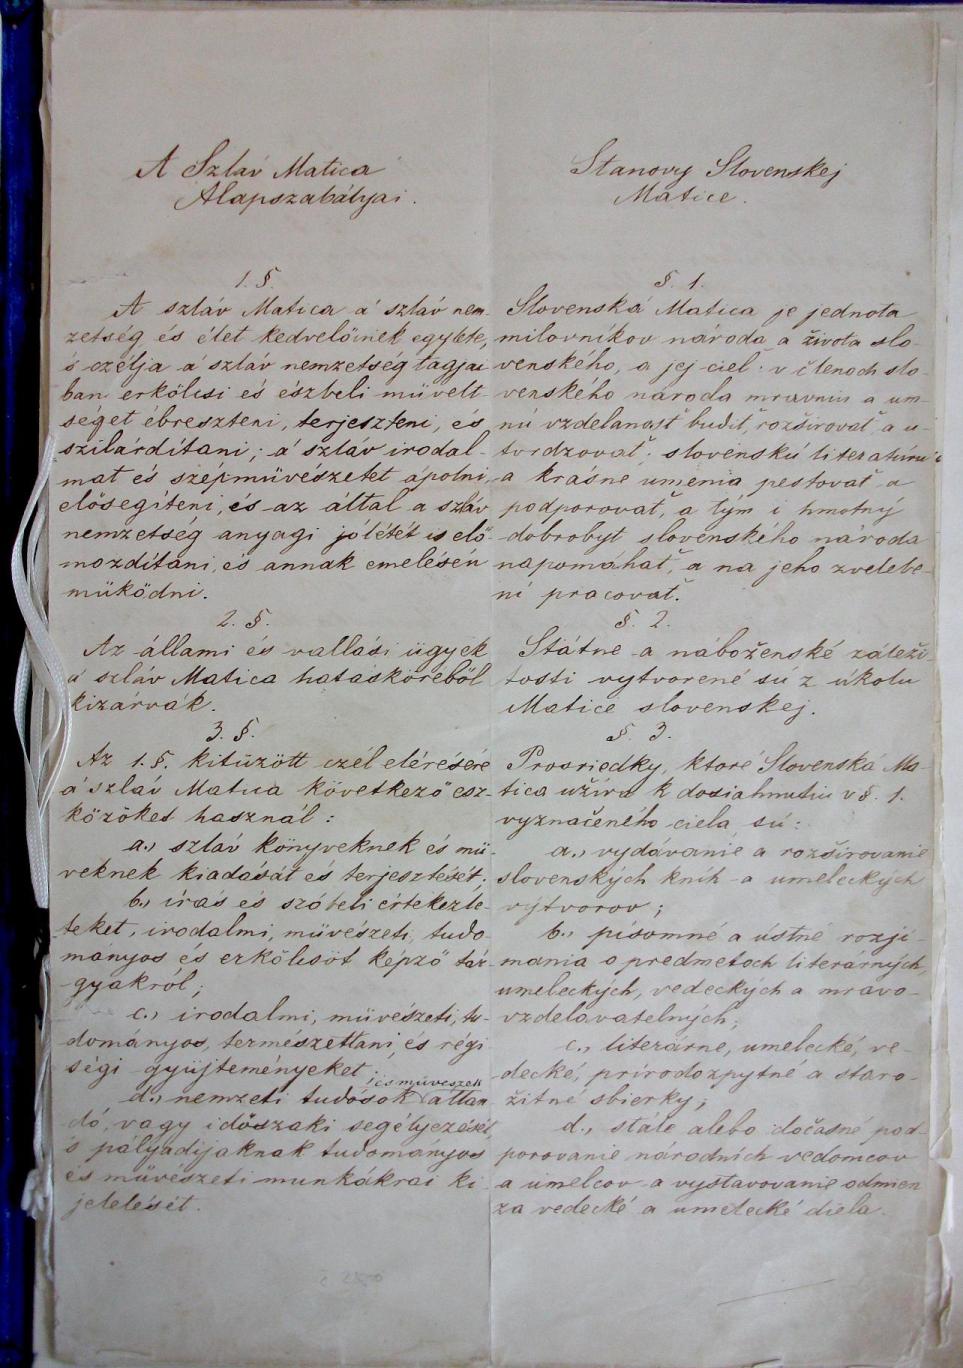 A Szláv Matica
Alapszabályai.
1. §.
A szláv Matica a' szláv nem-
zetség és élet kedvelőinek egylete,
's czélja a' szláv nemzetség tagjai
ban erkölcsi és észbeli müvelt-
séget ébreszteni, terjeszteni, és
szilárdítani; a' szláv irodal-
mat és szépmüvészetet ápolni,
elősegíteni, és az által a szláv
nemzetség anyagi jólétét is elő-
mozdítani, és annak emelésén
müködni.
2. §.
Az állami és vallási ügyek
a' szláv Matica hatásköréből
kizárvák.
3. §.
Az 1. §. kitüzött czél elérésére
a' szláv Matica következő esz-
közöket használ:
a., szláv könyveknek és mü-
veknek kiadását és terjesztését;
b., írás és szóbeli értekezle-
teket, irodalmi, müvészeti, tudo-
mányos és erkölcsöt képző tár-
gyakról;
c., irodalmi, müvészeti, tu-
dományos, természettani, és régi
ségi gyüjteményeket;
és müvészek
d., nemzeti tudósok állan-
dó, vagy időszaki segélyezését,
's pályadijaknak tudományos
és müvészeti munkákrai ki-
jelelését.
Stanovy Slovenskej
Matice.
§. 1.
Slovenská Matica je jednota
milovníkov národa a života slo-
venského, a jej cieľ: v členoch slo-
venského národa mravniu a um-
nú vzdelanosť budiť, rozširovať a u-
tvrdzovať; slovenskú literatúru
a krásne umenia pestovať a
podporovať, a tým i hmotný
dobrobyt slovenského národa
napomáhať, a na jeho zvelebe-
ní pracovať.
§. 2.
Státne a náboženské záleži-
tosti vytvorené sú z úkolu
Matice slovenskej.
§. 3.
Prosriedky, ktoré Slovenská Ma-
tica užíva k dosiahnutiu v §. 1.
vyznačeného ciela, sú:
a., vydávanie a rozširovanie
slovenských kníh a umeleckých
výtvorov;
b., písomné a ústné rozjí-
mania o predmetoch literárných,
umeleckých, vedeckých a mravo-
vzdelávatelných;
c., literárne, umelecké, ve-
decké, prírodozpytné a staro-
žitné sbierky;
d., stále alebo dočasné pod-
porovanie národních vedomcov
a umelcov a vystavovanie odmien
za vedecké a umelecké diela.